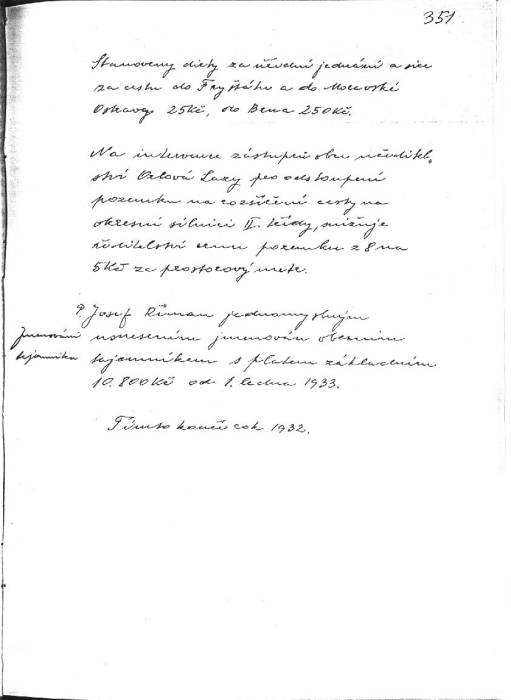 351
Stanoveny diety za úřední jednání a sice
za cestu do Fryštátu a do Moravské
Ostravy 25Kč, do Brna 250Kč.
Na intervenci zástupců obce ředitel-
ství Orlová Lazy pro odstoupení
pozemku na rozšíření cesty na
okresní silnici II. třídy, snižuje
ředitelství cenu pozemku z 8 na
5Kč za prostorový metr.
P. Josef Říman jednomyslným
Jmenování
tajemníka
usnesením jmenován obecním
tajemníkem s platem základním
10.800Kč od 1. ledna 1933.
Tímto končí rok 1932.